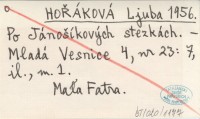 HOŘÁKOVÁ Ljuba 1956.
Po Jánošíkových stezkách. –
Mladá Vesnice 4, nr 23: 7,
il., m. 1.
Maľa Fatra.